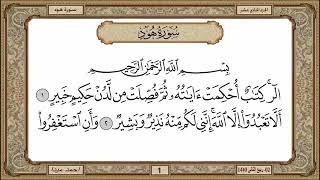 سورة هود
الجزء الحادي عشر
سُورَةُ هُودٍ
بِسْمِ اللَّهِ الرَّحْمَٰنِ الرَّحِيمِ
الٓر ۚ كِتَٰبٌ أُحْكِمَتْ ءَايَٰتُهُۥ ثُمَّ فُصِّلَتْ مِن لَّدُنْ حَكِيمٍ خَبِيرٍ ١
أَلَّا تَعْبُدُوٓا۟ إِلَّا ٱللَّهَ ۚ إِنَّنِى لَكُم مِّنْهُ نَذِيرٌ وَبَشِيرٌ ٢ وَأَنِ ٱسْتَغْفِرُوا۟
1